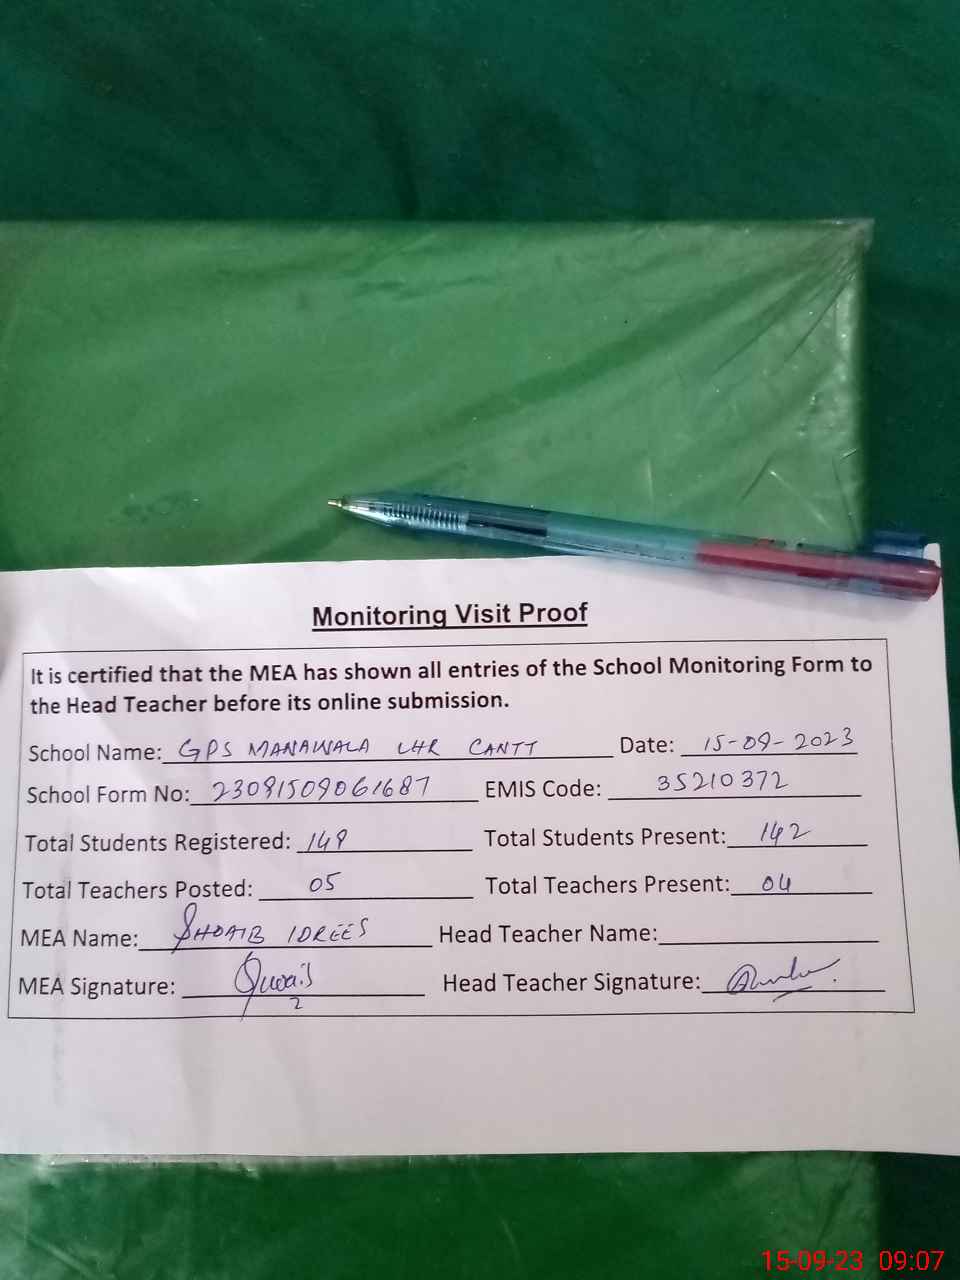 Monitoring Visit Proof
It is certified that the MEA has shown all entries of the School Monitoring Form to
the Head Teacher before its online submission.
School Name: GPS MANAWALA LHR CANTT Date: 15-09-2023
School Form No: 23091509061687 EMIS Code: 35210372
Total Students Registered: 149 Total Students Present: 142
Total Teachers Posted: 05 Total Teachers Present: 04
MEA Name: SHOAIB IDREES Head Teacher Name:
MEA Signature: Head Teacher Signature:
15-09-23 09:07